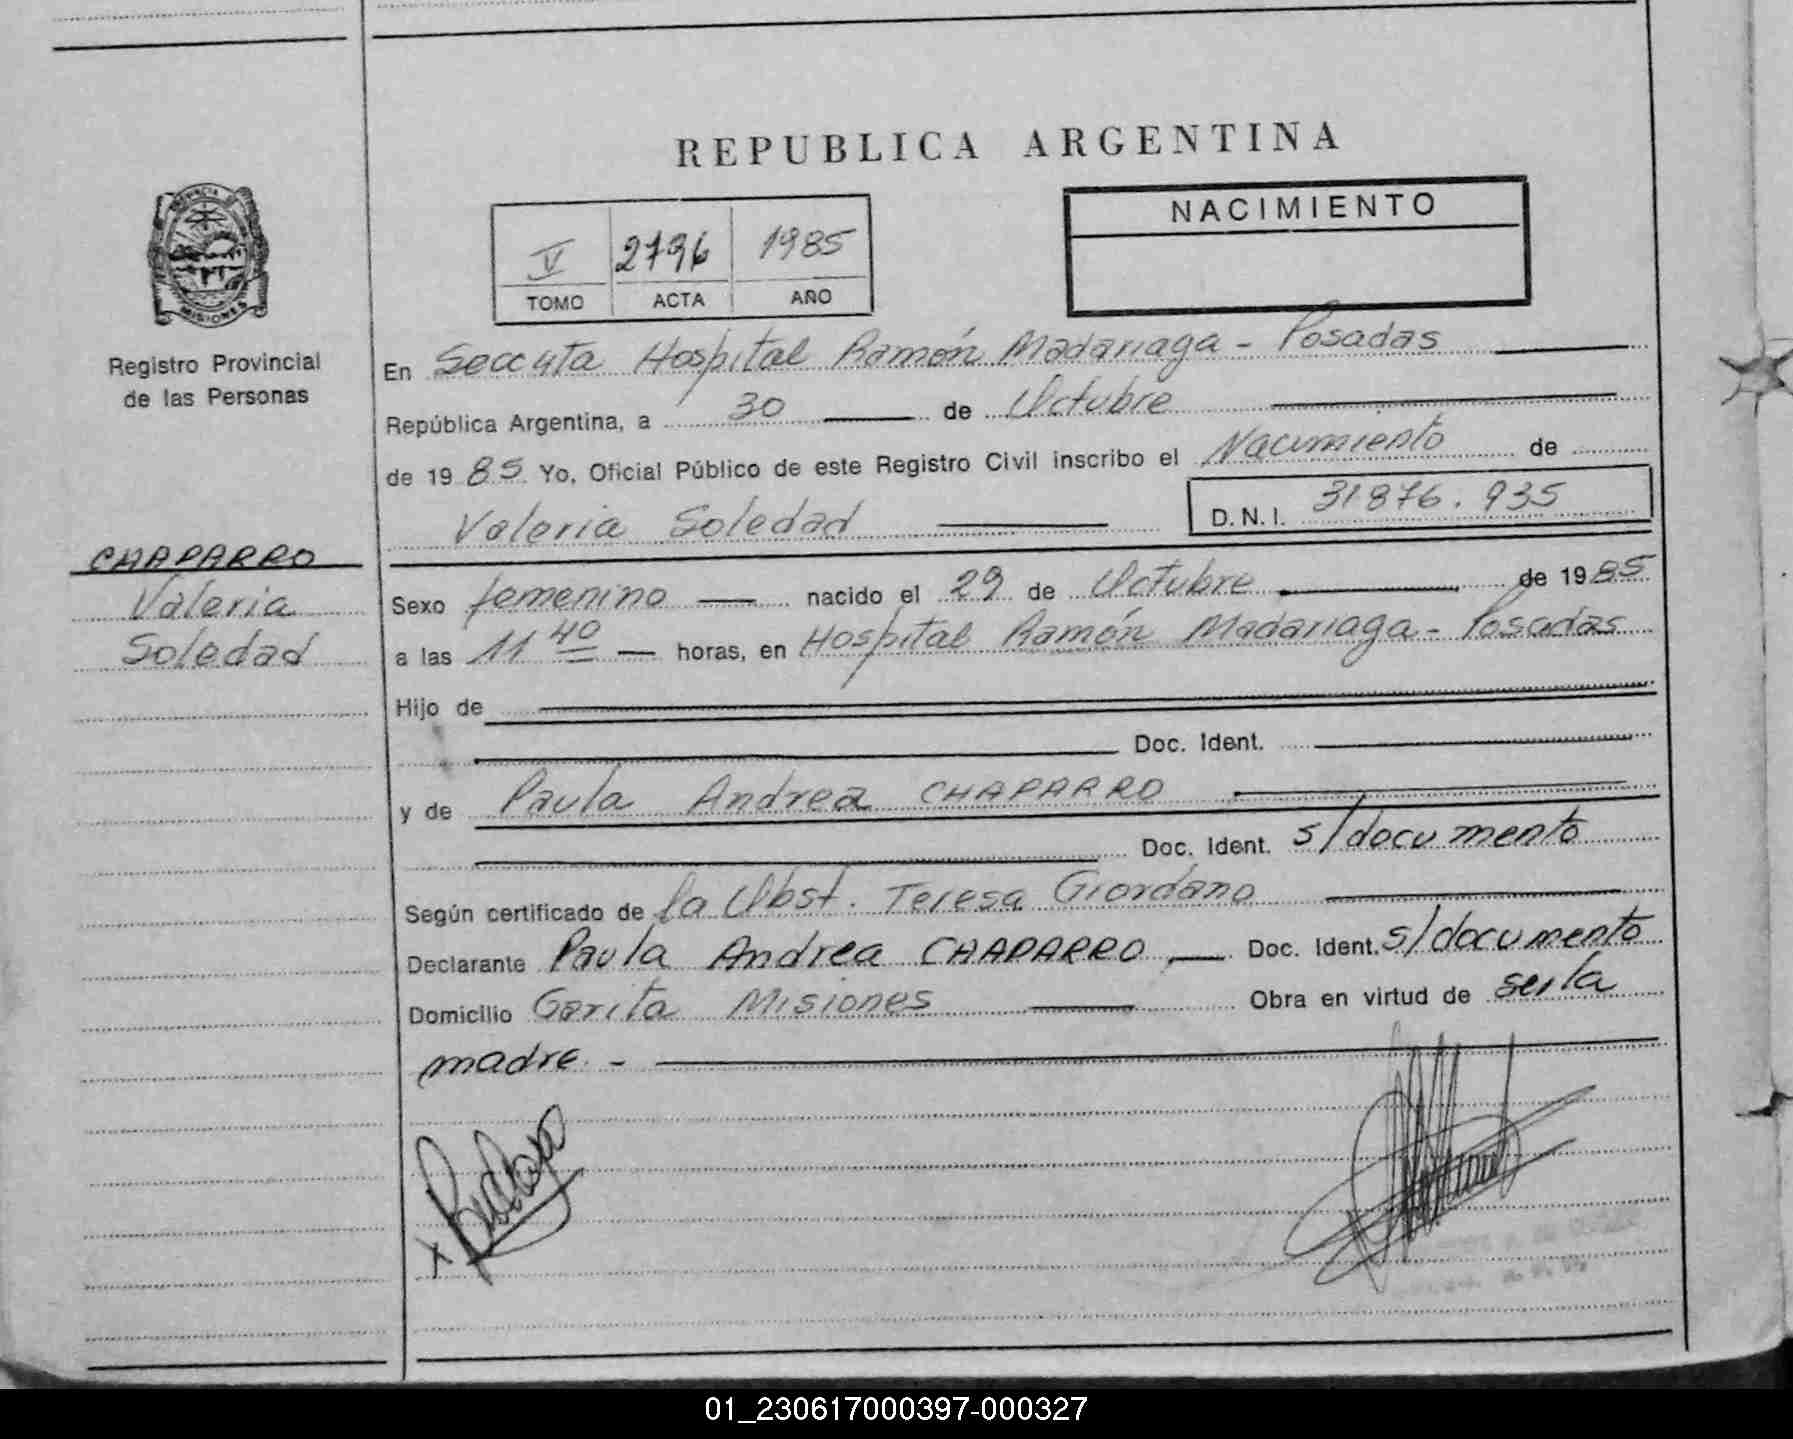 REPUBLICA ARGENTINA
PROVINCIA DE
MISIONES
Registro Provincial
de las Personas
V 2796 1985
TOMO ACTA AÑO
NACIMIENTO
En Secc 4ta Hospital Ramón Madariaga - Posadas
República Argentina, a 30 de Octubre
de 1985 Yo, Oficial Público de este Registro Civil inscribo el Nacimiento de
Valeria Soledad D.N.I. 31876.935
CHAPARRO
Valeria
Soledad
Sexo femenino nacido el 29 de Octubre de 1985
a las 11 40 horas, en Hospital Ramón Madariaga - Posadas
Hijo de
Doc. Ident.
y de Paula Andrea CHAPARRO
Doc. Ident. s/documento
Según certificado de la Obst. Teresa Giordano
Declarante Paula Andrea CHAPARRO Doc. Ident. s/documento
Domicilio Garita Misiones Obra en virtud de ser la
madre. -
x
01_230617000397-000327